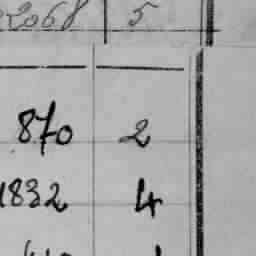 2068 5
870 2
1832 4